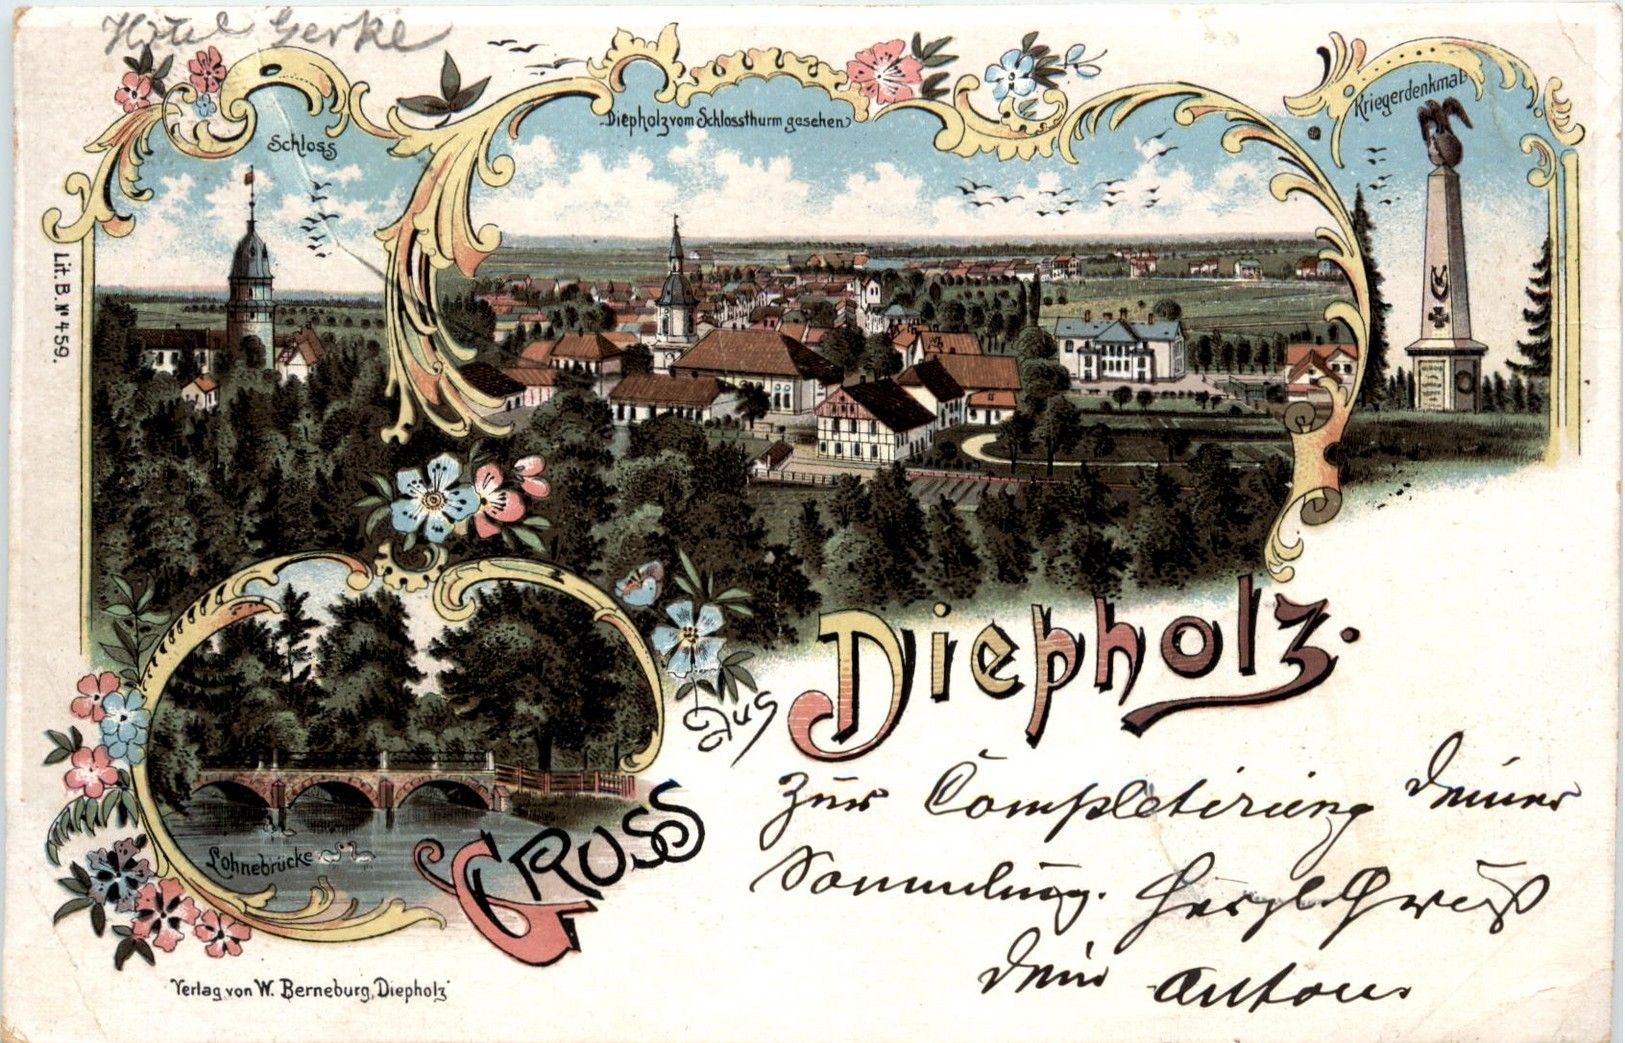 Hotel Gerke
Schloss
Diepholz vom Schlossthurm gesehen
Kriegerdenkmal
Lit. B. Nº 459.
Gruss aus Diepholz.
Lohnebrücke
Zur Completirung deiner
Sammlung. Herzl. Gruß
dein Anton.
Verlag von W. Berneburg, Diepholz